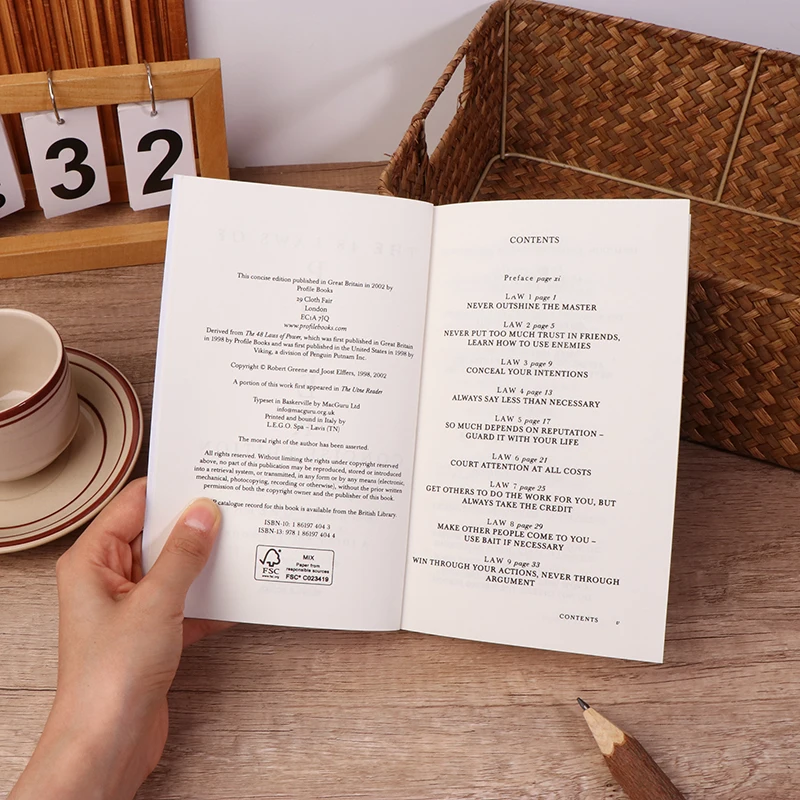 3
32
This concise edition published in Great Britain in 2002 by
Profile Books
29 Cloth Fair
London
EC1A 7JQ
www.profilebooks.com
Derived from The 48 Laws of Power, which was first published in Great Britain
in 1998 by Profile Books and was first published in the United States in 1998 by
Viking, a division of Penguin Putnam Inc.
Copyright © Robert Greene and Joost Elffers, 1998, 2002
A portion of this work first appeared in The Utne Reader
Typeset in Baskerville by MacGuru Ltd
info@macguru.org.uk
Printed and bound in Italy by
L.E.G.O. Spa – Lavis (TN)
The moral right of the author has been asserted.
All rights reserved. Without limiting the rights under copyright reserved
above, no part of this publication may be reproduced, stored or introduced
into a retrieval system, or transmitted, in any form or by any means (electronic,
mechanical, photocopying, recording or otherwise), without the prior written
permission of both the copyright owner and the publisher of this book.
catalogue record for this book is available from the British Library.
ISBN-10: 1 86197 404 3
ISBN-13: 978 1 86197 404 4
FSC
www.fsc.org
MIX
Paper from
responsible sources
FSC® C023419
CONTENTS
Preface page xi
LAW 1 page 1
NEVER OUTSHINE THE MASTER
LAW 2 page 5
NEVER PUT TOO MUCH TRUST IN FRIENDS,
LEARN HOW TO USE ENEMIES
LAW 3 page 9
CONCEAL YOUR INTENTIONS
LAW 4 page 13
ALWAYS SAY LESS THAN NECESSARY
LAW 5 page 17
SO MUCH DEPENDS ON REPUTATION –
GUARD IT WITH YOUR LIFE
LAW 6 page 21
COURT ATTENTION AT ALL COSTS
LAW 7 page 25
GET OTHERS TO DO THE WORK FOR YOU, BUT
ALWAYS TAKE THE CREDIT
LAW 8 page 29
MAKE OTHER PEOPLE COME TO YOU –
USE BAIT IF NECESSARY
LAW 9 page 33
WIN THROUGH YOUR ACTIONS, NEVER THROUGH
ARGUMENT
CONTENTS